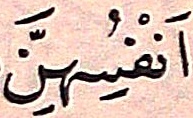 اَنْفُسِهِنَّ